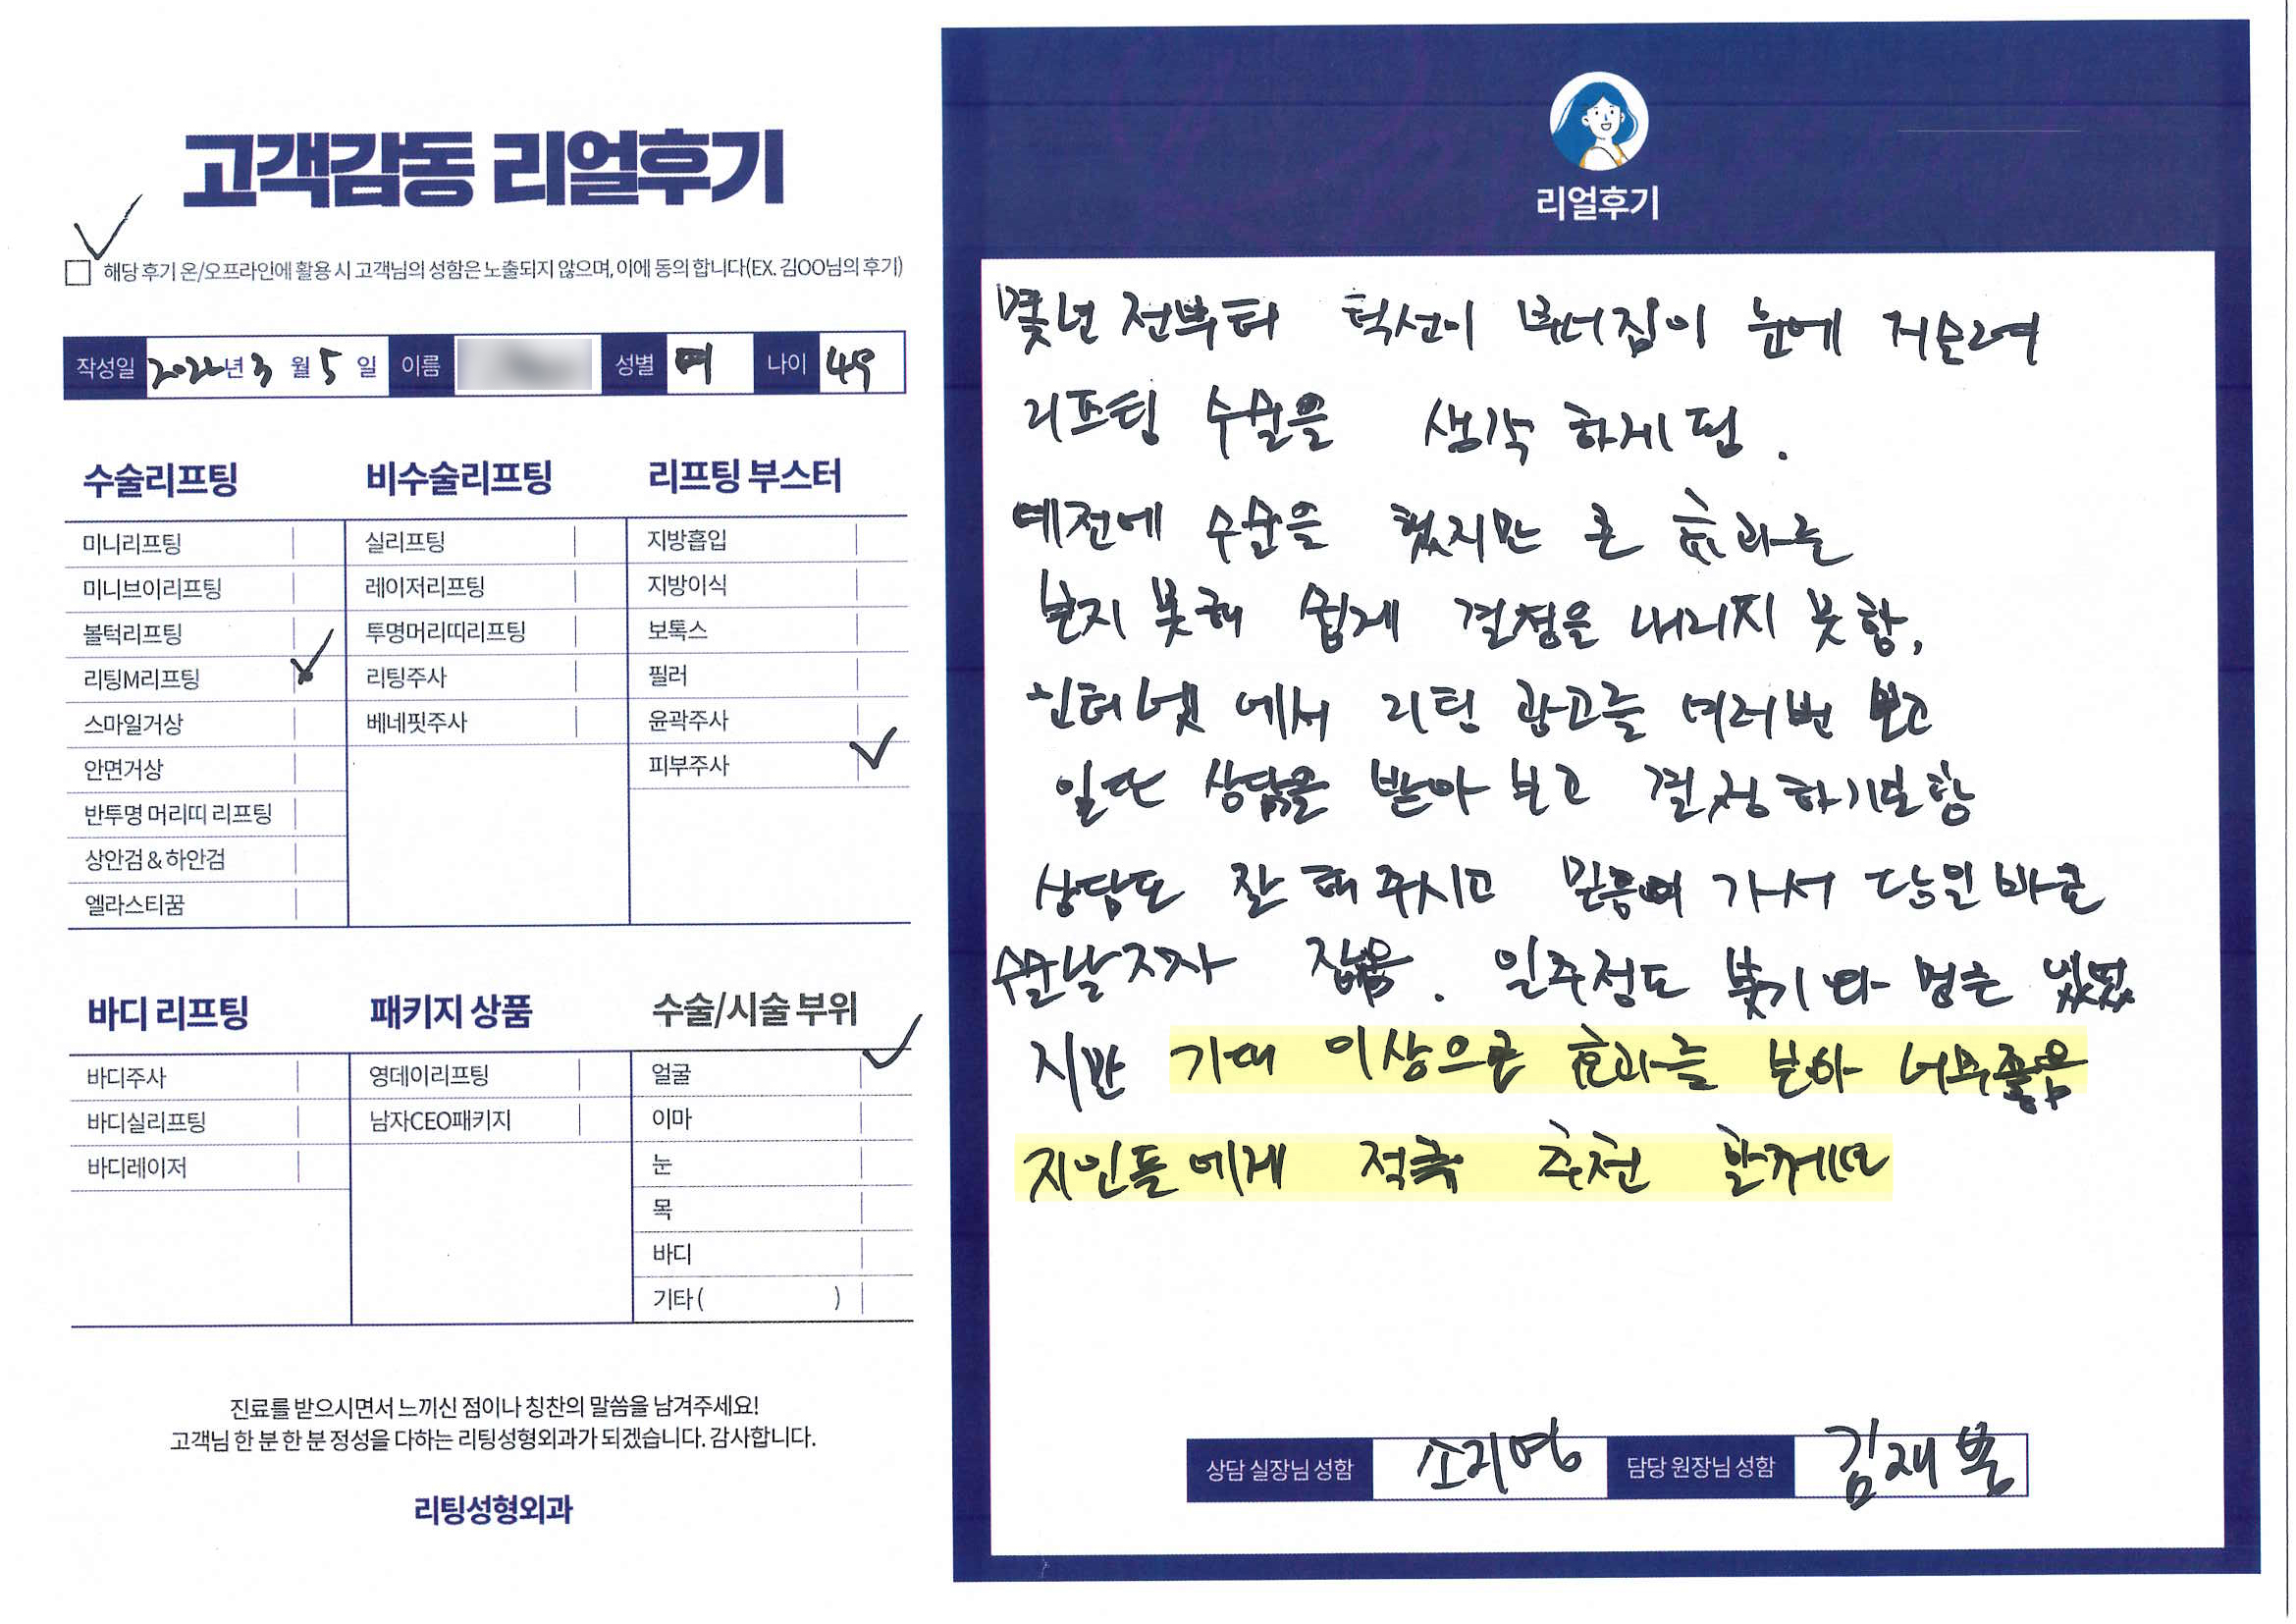 고객감동 리얼후기
해당 후기 온/오프라인에 활용 시 고객님의 성함은 노출되지 않으며, 이에 동의 합니다(EX. 김OO님의 후기)
작성일 2022년 3월 5일 이름 성별 여 나이 49
수술리프팅
미니리프팅
미니브이리프팅
볼턱리프팅
리팅M리프팅
스마일거상
안면거상
반투명 머리띠 리프팅
상안검 & 하안검
엘라스티꿈
비수술리프팅
실리프팅
레이저리프팅
투명머리띠리프팅
리팅주사
베네핏주사
리프팅 부스터
지방흡입
지방이식
보톡스
필러
윤곽주사
피부주사
바디 리프팅
바디주사
바디실리프팅
바디레이저
패키지 상품
영데이리프팅
남자CEO패키지
수술/시술 부위
얼굴
이마
눈
목
바디
기타 ( )
진료를 받으시면서 느끼신 점이나 칭찬의 말씀을 남겨주세요!
고객님 한 분 한 분 정성을 다하는 리팅성형외과가 되겠습니다. 감사합니다.
리팅성형외과
리얼후기
몇년 전부터 턱선이 무너짐이 눈에 거슬려
리프팅 수술을 생각 하게 됨.
예전에 수술을 했지만 큰 효과를
보지 못해 쉽게 결정을 내리지 못함,
인터넷 에서 리팅 광고를 여러번 보고
일단 상담을 받아 보고 결정 하기로 함
상담도 잘 해 주시고 믿음이 가서 당일 바로
수술날짜 잡음. 일주정도 붓기 와 멍은 있었
지만 기대 이상으로 효과를 보아 너무좋음
지인들 에게 적극 추천 할께요
상담 실장님 성함 소지영 담당 원장님 성함 김재봉